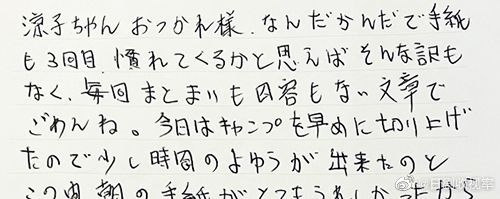 涼子ちゃん おつかれ様. なんだかんだで手紙
も3回目. 慣れてくるかと思えば そんな訳も
なく、毎回 まとまりも内容もない文章で
ごめんね。今日はキャンプを早めに切り上げ
たので少し時間のよゆうが出来たのと
この間、朝の手紙がとってもうれしかったから